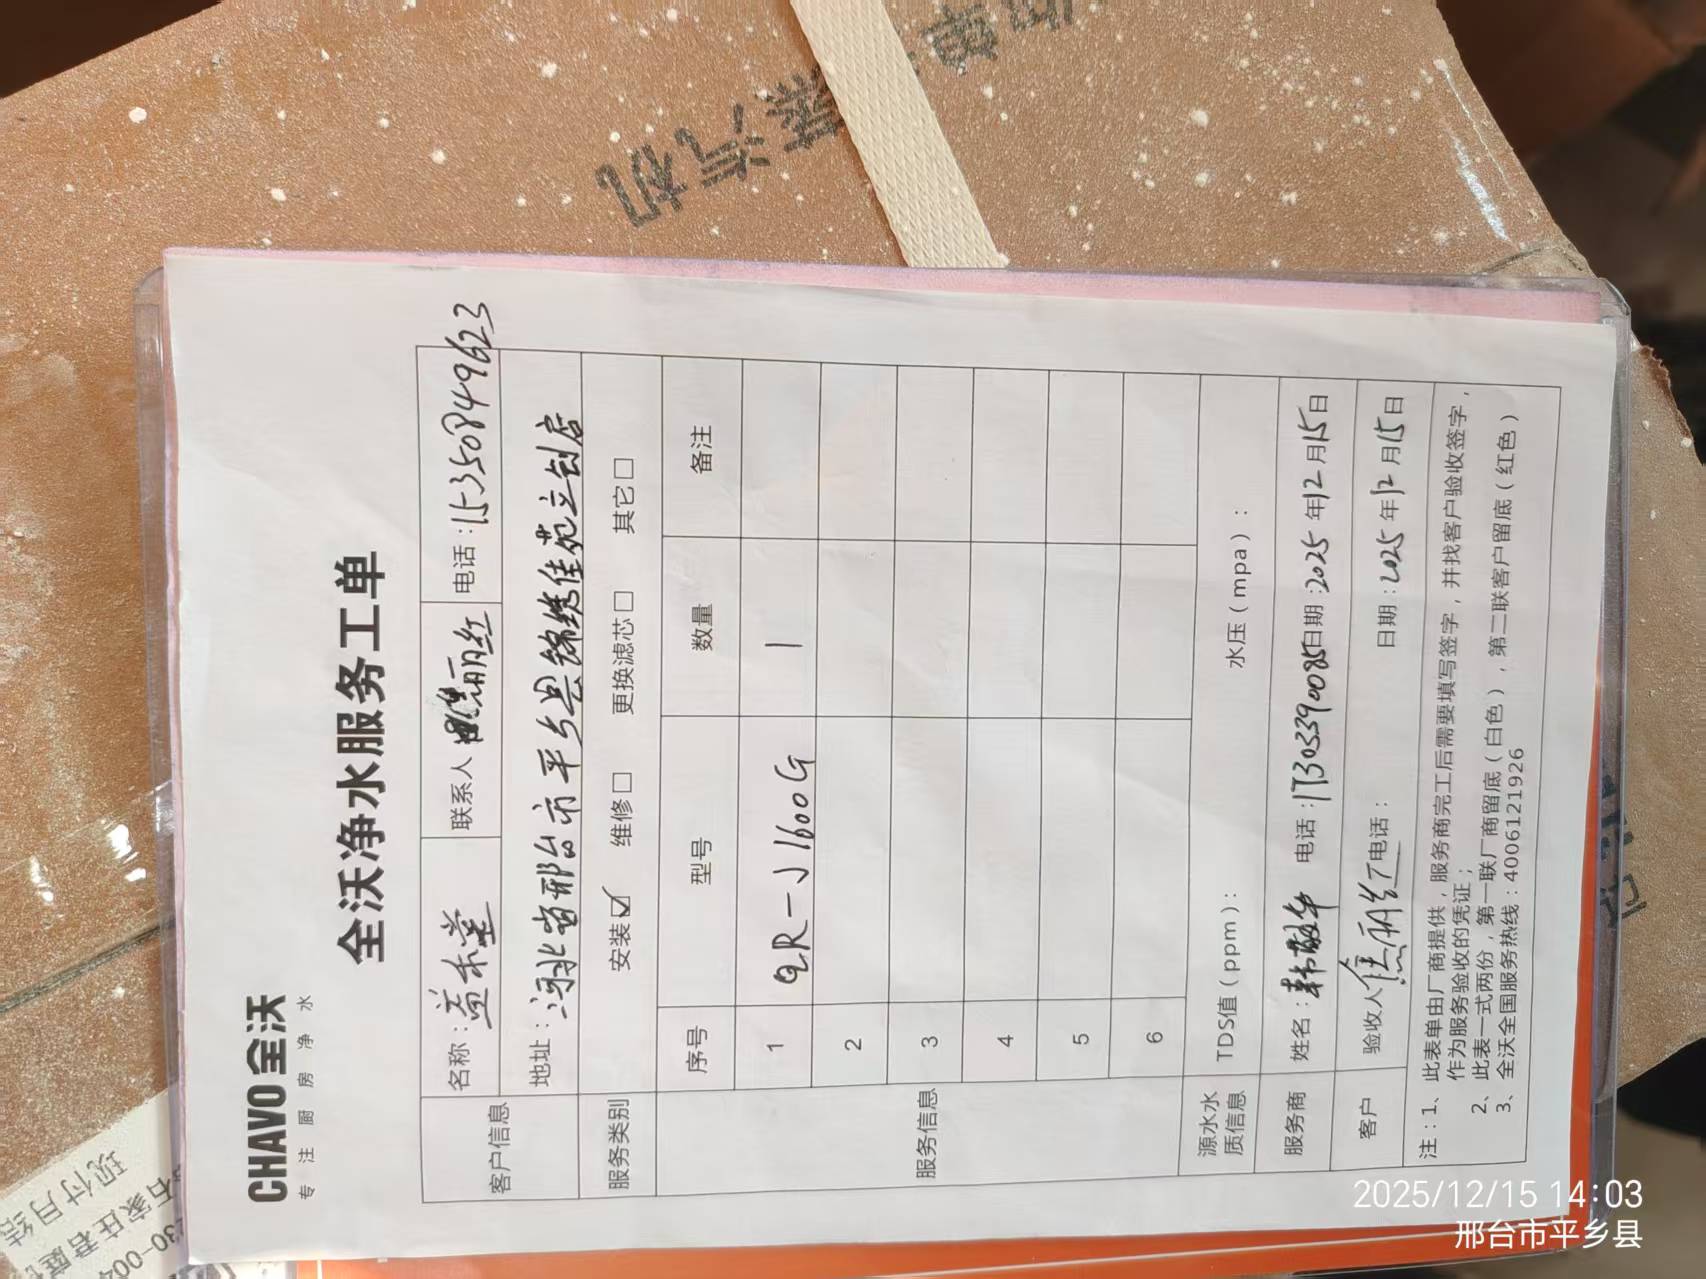 CHAVO全沃
专注厨房净水
全沃净水服务工单
客户信息 名称：益禾堂 联系人 焦丽红 电话：15350849623
地址：河北省邢台市平乡县锦绣佳苑立创店
服务类别 安装☑ 维修□ 更换滤芯□ 其它□
服务信息 序号 型号 数量 备注
1 QR-J1600G 1
2
3
4
5
6
源水水质信息 TDS值（ppm）： 水压（mpa）：
服务商 姓名：韩敬华 电话：17303390085 日期：2025年12月15日
客户 验收人 焦丽红 电话： 日期：2025年12月15日
注：1、此表单由厂商提供，服务商完工后需要填写签字，并找客户验收签字，
作为服务验收的凭证；
2、此表一式两份，第一联厂商留底（白色），第二联客户留底（红色）
3、全沃全国服务热线：4006121926
蒸汽机
现付月结
石家庄君庭
2025/12/15 14:03
邢台市平乡县